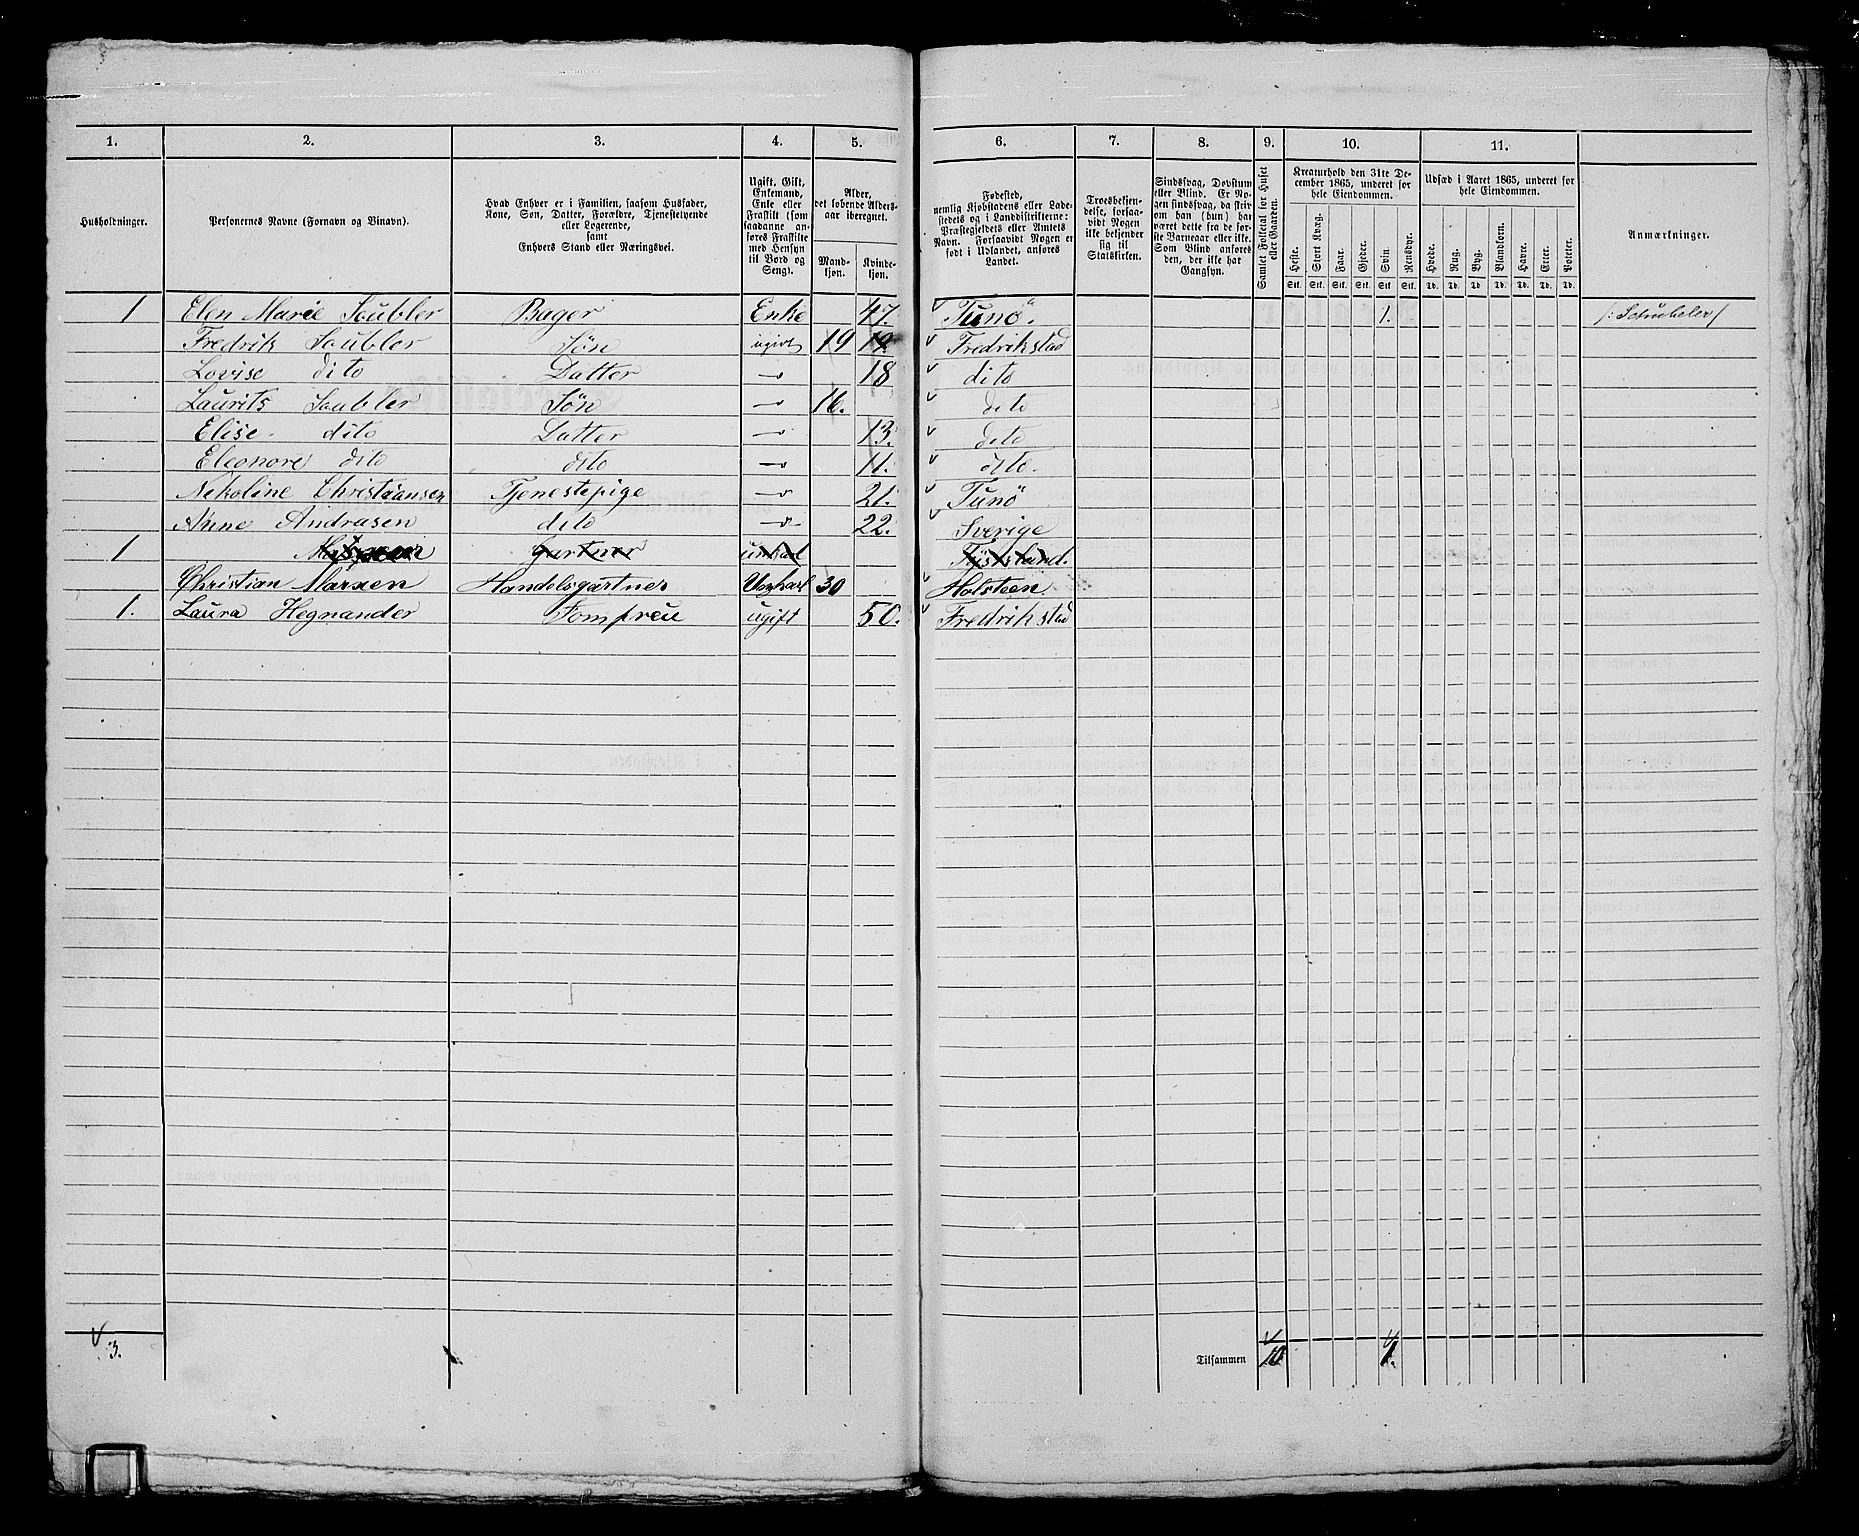 1. 2. 3. 4. 5. 6. 7. 8. 9. 10. 11.
Husholdninger.
Personernes Navne (Fornavn og Binavn).
Hvad Enhver er i Familien, saasom Husfader,
Kone, Søn, Datter, Forældre, Tjenestetyende
eller Logerende,
samt
Enhvers Stand eller Næringsvei.
Ugift, Gift,
Enkemand,
Enke eller
Fraskilt (som
saadanne an-
føres Fraskilte
med Hensyn
til Bord og
Seng).
Alder,
det løbende Alders-
aar iberegnet.
Mand-
kjøn.
Kvinde-
kjøn.
Fødested,
nemlig Kjøbstadens eller Lade-
stedets og i Landdistrikterne:
Præstegjeldets eller Amtets
Navn. Forsaavidt Nogen er
født i Udlandet, anføres
Landet.
Troesbekjen-
delse, forsaa-
vidt Nogen
ikke bekjender
sig til
Statskirken.
Sindssvag, Døvstum
eller Blind. Er No-
gen sindssvag, da skriv
om han (hun) har
været dette fra de før-
ste Barneaar eller ikke.
Som Blind anføres
den, der ikke har
Gangsyn.
Samlet Folketal for Huset
eller Gaarden.
Kreaturhold den 31te De-
cember 1865, underet for
hele Eiendommen.
Heste. Stort Kvæg. Faar. Gjeder. Svin. Rensdyr.
Stk. Stk. Stk. Stk. Stk. Stk.
Udsæd i Aaret 1865, underet for
hele Eiendommen.
Hvede. Rug. Byg. Blandkorn. Havre. Erter. Poteter.
Td. Td. Td. Td. Td. Td. Td.
Anmærkninger.
1 Elen Marie Soubler Bager Enke 47. Tunö. 1. /: Schübeler /
Fredrik Soubler Søn ugivt 19 Fredrikstad
Lovise dito Datter 18 dito
Laurits Soubler Søn 16. dito
Elise dito Datter 13. dito
Eleonore dito dito 11. dito
Nikoline Christiansen Tjenestepige 21. Tunö
Anne Andrasen dito 22. Sverige
1 Gartner
Christian Marxen Handelsgartner Ungkarl 30 Holsteen
1. Laura Hegnander Jomfreu ugift 50. Fredrikstad
3. Tilsammen 10 1.